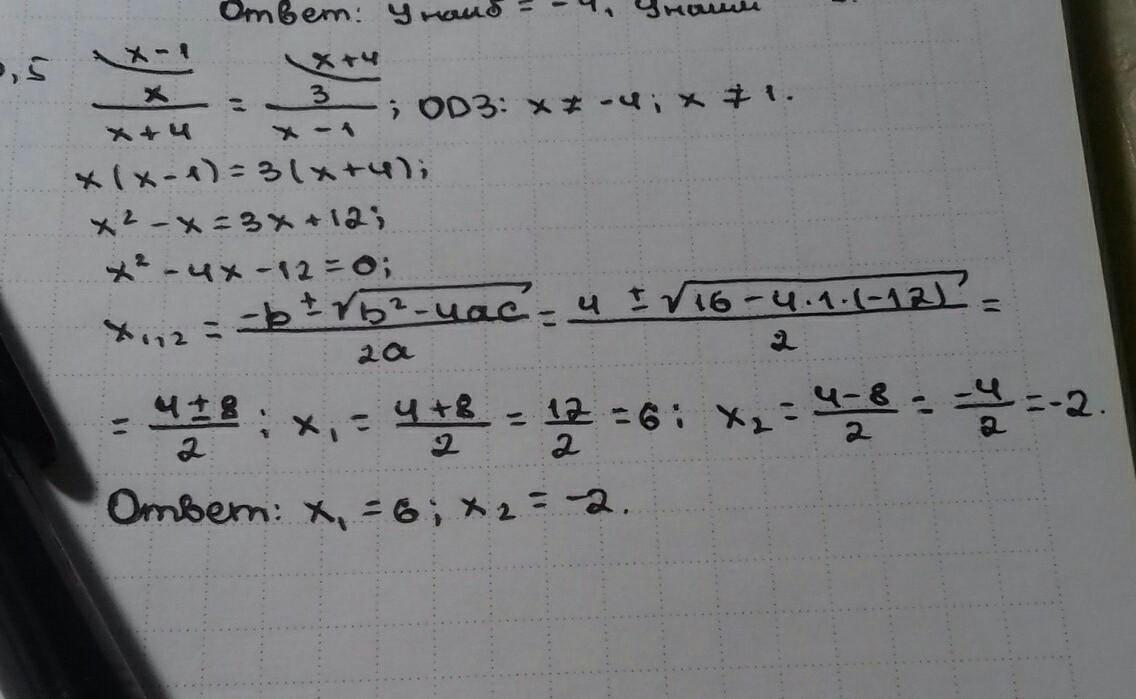 Ответ: y наиб = -4, y наим
,5 x-1 / x / x+4 = x+4 / 3 / x-1 ; ОДЗ: x ≠ -4; x ≠ 1.
x(x-1)=3(x+4);
x² - x = 3x+12;
x² - 4x - 12 = 0;
x₁,₂ = (-b ± √(b² - 4ac)) / 2a = (4 ± √(16 - 4·1·(-12))) / 2 =
= (4±8) / 2 ; x₁ = (4+8) / 2 = 12 / 2 = 6; x₂ = (4-8) / 2 = -4 / 2 = -2.
Ответ: x₁ = 6; x₂ = -2.